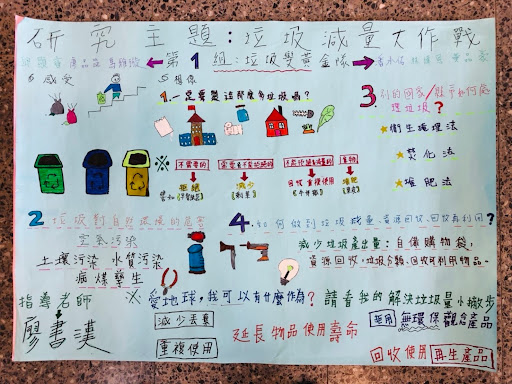 研究主題：垃圾減量大作戰
第1組：垃圾變黃金隊
感受
想像
1.一定要製造那麼多垃圾嗎？
不需要的
拒絕
減少
重複使用
2 垃圾對自然環境的危害
空氣污染
土壤污染 水質污染
病媒孳生
3.別的國家/縣市如何處理垃圾？
衛生掩埋法
焚化法
堆肥法
4.如何做到垃圾減量、資源回收、回收再利用？
減少垃圾產出量：自備購物袋，
資源回收，垃圾分類，回收可利用物品。
指導老師
廖書漢
※ 愛地球，我可以有什麼作為？請看我的解決垃圾量小撇步
減少丟棄
重複使用
延長物品使用壽命
拒用 無環保觀念產品
回收使用 再生產品